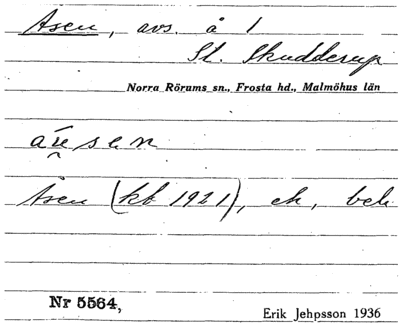 Åsen, avs. å 1
St. Skudderup
Norra Rörums sn., Frosta hd., Malmöhus län
sen
Åsen (kb 1921), ek, beb
Nr 5564,
Erik Jehpsson 1936